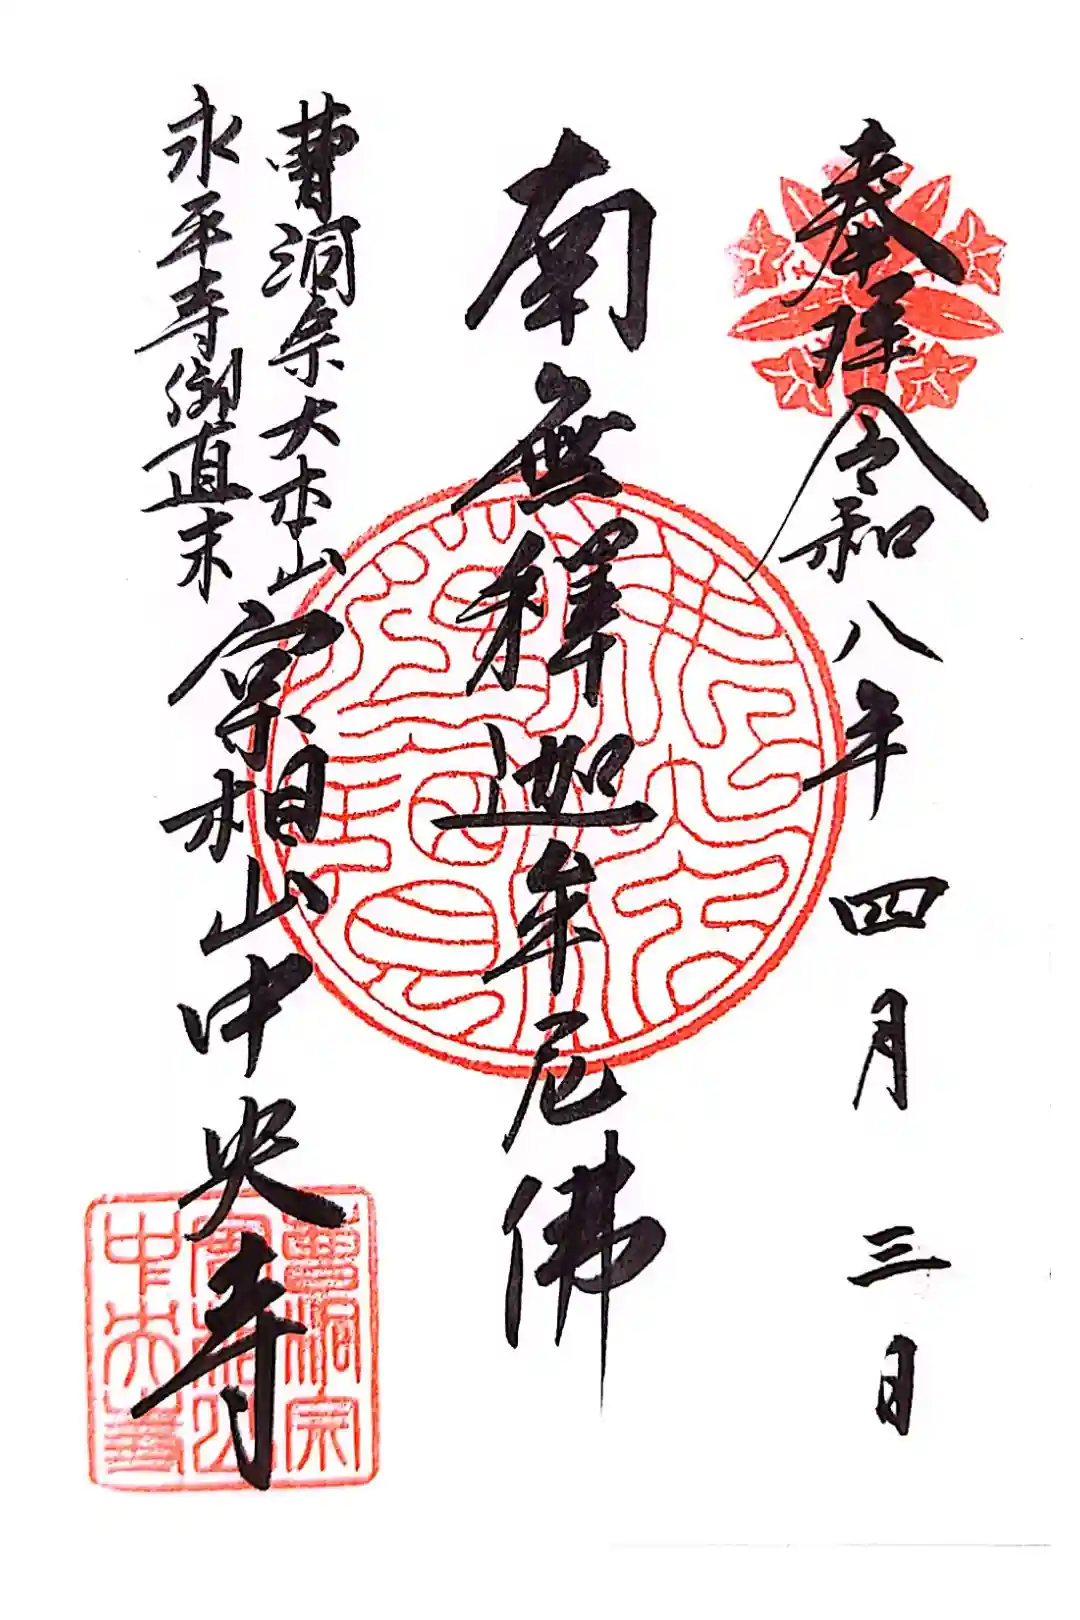 奉拝 令和八年四月三日
南無釋迦牟尼佛
曹洞宗大本山
永平寺御直末
宗相山中央寺
曹洞宗
宗相山
中央寺